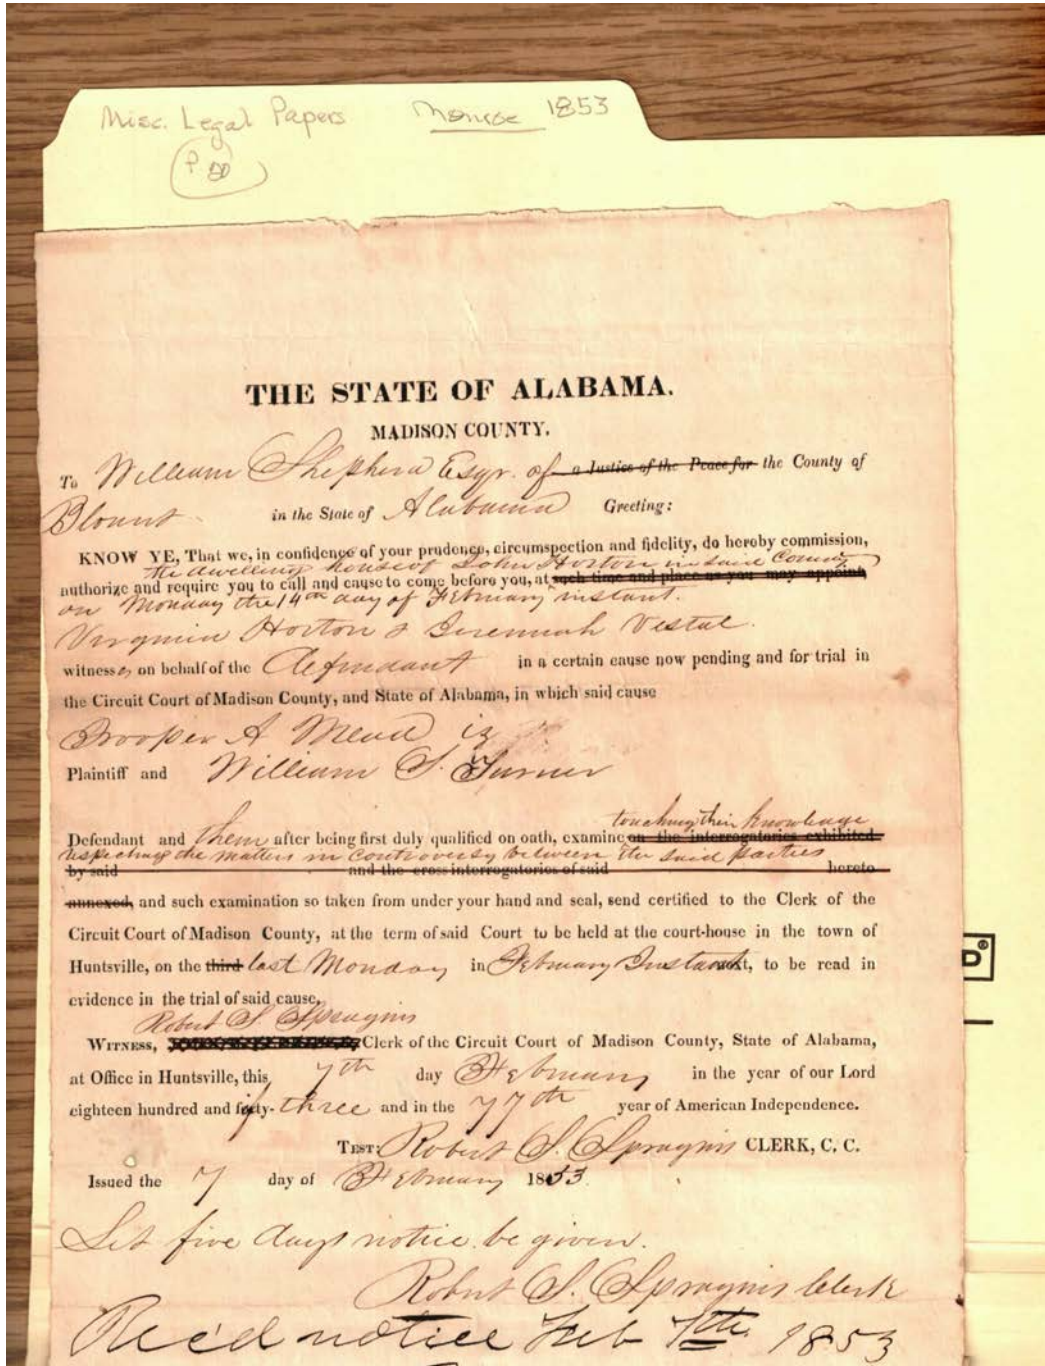 Misc. Legal Papers Monroe 1853
P
THE STATE OF ALABAMA.
MADISON COUNTY.
To William Shepherd Esqr. of a Justice of the Peace for the County of
Blount in the State of Alabama Greeting:
KNOW YE, That we, in confidence of your prudence, circumspection and fidelity, do hereby commission,
the dwelling house of John Horton in said County
authorize and require you to call and cause to come before you, at such time and place as you may appoint
on Monday the 14th day of February instant.
Virginia Horton & Jeremiah Vestal.
witness es on behalf of the defendant in a certain cause now pending and for trial in
the Circuit Court of Madison County, and State of Alabama, in which said cause
A Mead is
Plaintiff and William S. Turner
touching their knowledge
Defendant and them after being first duly qualified on oath, examine on the interrogatories exhibited
respecting the matters in controversy between the said parties
by said and the cross interrogatories of said hereto
annexed, and such examination so taken from under your hand and seal, send certified to the Clerk of the
Circuit Court of Madison County, at the term of said Court to be held at the court-house in the town of
Huntsville, on the third last Monday in February Instant next, to be read in
evidence in the trial of said cause.
Robert S. Spragins
WITNESS, Clerk of the Circuit Court of Madison County, State of Alabama,
at Office in Huntsville, this 7th day February in the year of our Lord
eighteen hundred and fifty-three and in the 77th year of American Independence.
TEST: Robert S. Spragins CLERK, C. C.
Issued the 7 day of February 1853.
Let five days notice be given.
Robert S. Spragins Clerk
Rec'd notice Feb 7th 1853
D®